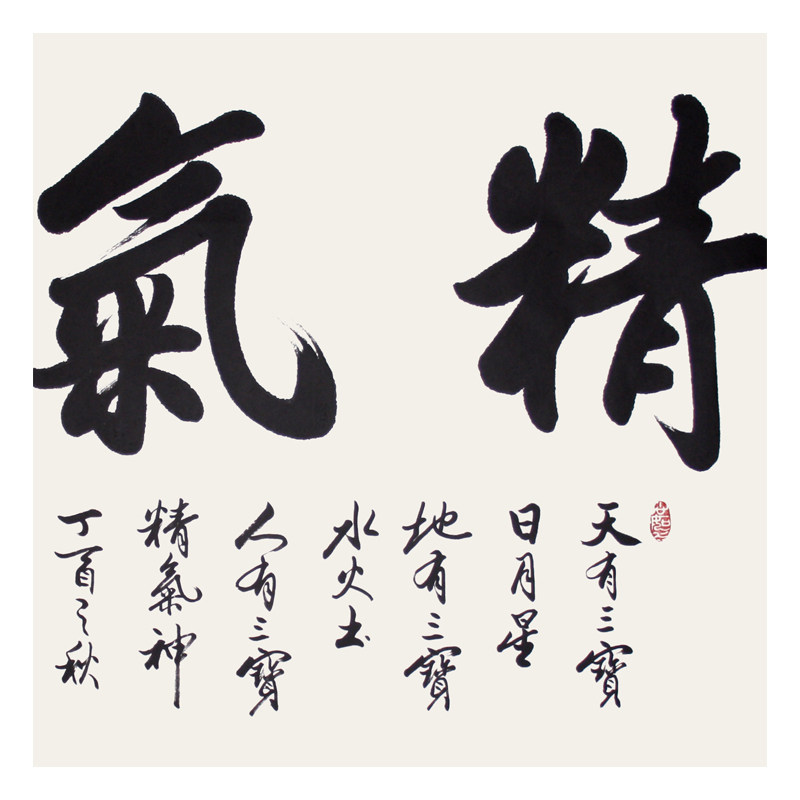 精氣
天有三寶
日月星
地有三寶
水火土
人有三寶
精氣神
丁酉之秋